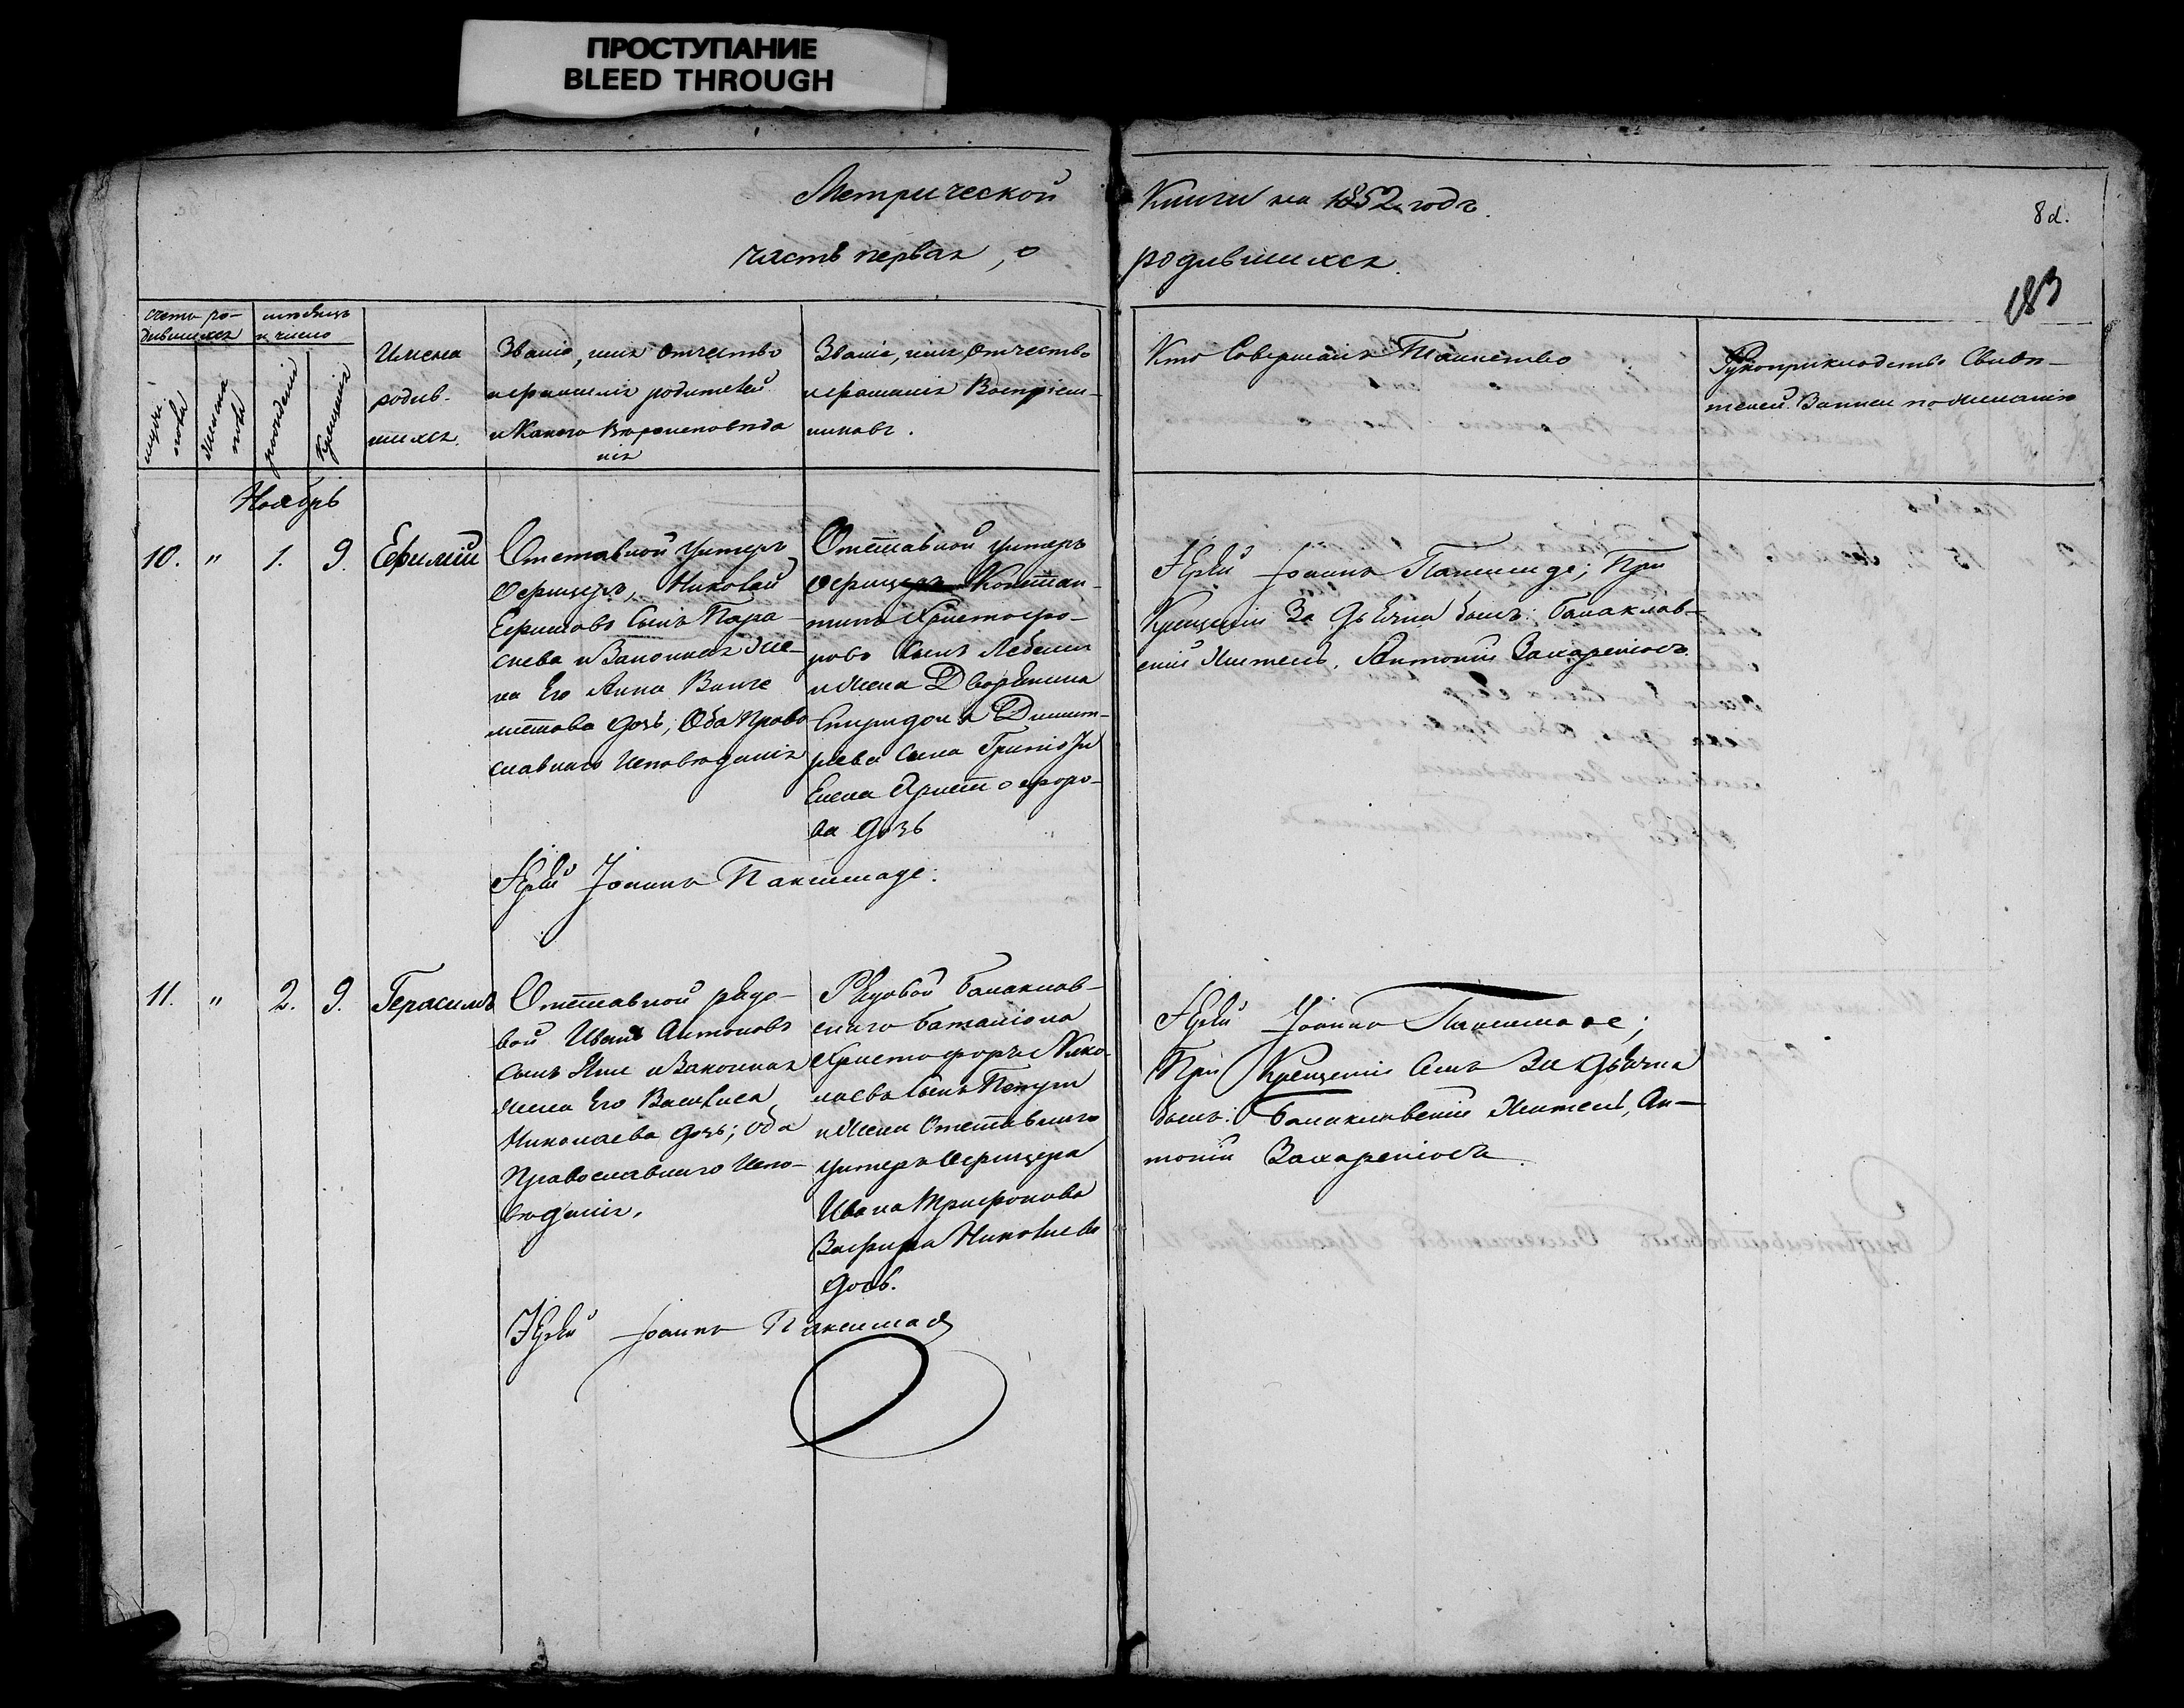 ПРОСТУПАНИЕ
BLEED THROUGH
Метрической Книги на 1852 годъ.
8 d.
часть первая, о родившихся.
183
счетъ ро-
дившихся
мѣсяцъ
и число
мужеска
пола
женска
пола
рожденія
крещенія
Имена
родив-
шихся.
Званіе, имя отчество
и фамилія родителей
и Какого Вѣроисповѣда
нія
Званіе, имя, отчество
и фамилія Воспріем-
никовъ.
Кто Совершалъ Таинство
Рукоприкладство Свидѣ-
телей Записи по желанію
Ноябрь
10. " 1. 9. Ефимій
Отставной унтеръ
офицеръ, Николай
Ефимовъ Сынъ Пара-
скева и Законная Же-
на Его Анна Ванге
листова дочь; Оба Право
славнаго Исповѣданія
Отставной унтеръ
офицеръ Констан-
тинъ Христофо-
ровъ Сынъ
и Жена Дворянина
Спиридона Димит-
ріева Сына
Елена Христофоро-
ва дочь
Іерей Іоаннъ Паксимаде; При
Крещеніи За дьячка былъ: Балаклав-
скій Житель, Антоній Захаріновъ.
Іерей Іоаннъ Паксимаде.
11. " 2. 9. Герасимъ
Отставной рядо-
вой Иванъ Антоновъ
Сынъ и Законная
жена Его Василиса
Николаева дочь; оба
Православнаго Испо-
вѣданія.
Рядовой Балаклав-
скаго баталіона
Христофоръ Нико-
лаевъ Сынъ
и Жена Отставнаго
унтеръ Офицера
Ивана Трифонова
Николаева
дочь.
Іерей Іоаннъ Паксимаде;
При Крещеніи Семъ За дьячка
былъ: Балаклавскій Житель, Ан-
тоній Захаріновъ.
Іерей Іоаннъ Паксимаде